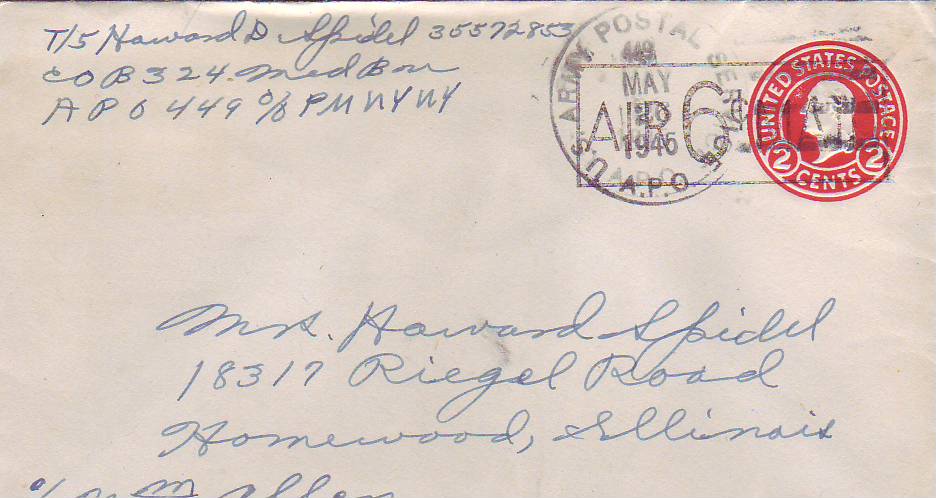 T/5 Howard D Spidel 35572853
CO B 324 Med Bn
APO 449 c/o PM NY NY
U.S. ARMY POSTAL SERVICE
449
MAY
20
1945
A.P.O
AIR 6¢
UNITED STATES POSTAGE
2 CENTS 2
Mrs. Howard Spidel
18317 Riegel Road
Homewood, Illinois
c/o Allen